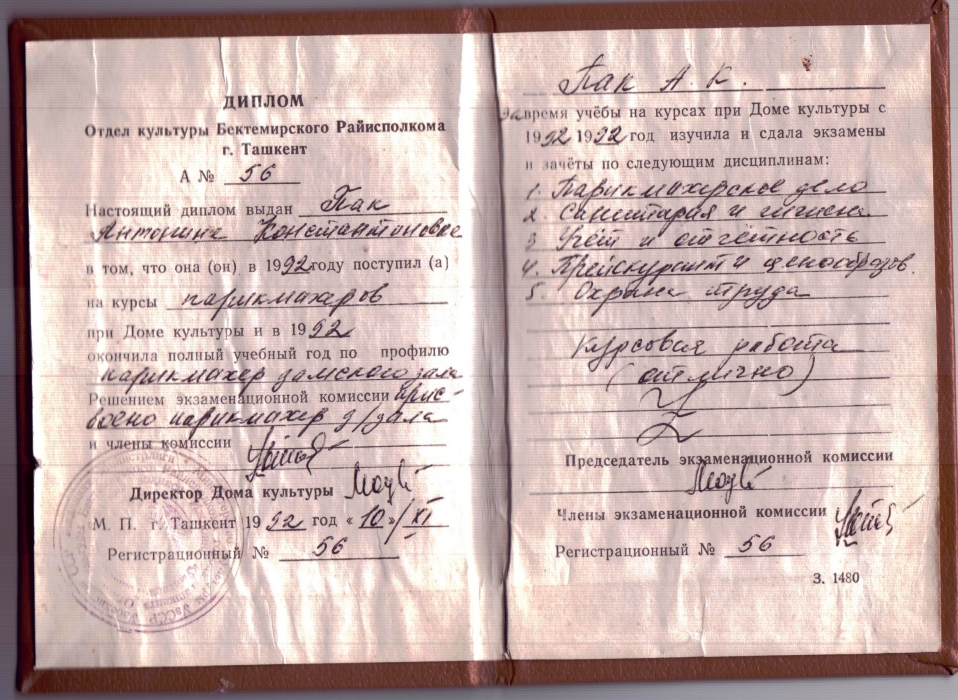 ДИПЛОМ
Отдел культуры Бектемирского Райисполкома
г. Ташкент
А № 56
Настоящий диплом выдан Пак
Антонине Константиновне
в том, что она (он) в 1992 году поступил (а)
на курсы парикмахеров
при Доме культуры и в 1992
окончила полный учебный год по профилю
парикмахер дамского зала
Решением экзаменационной комиссии прис-
воено парикмахер д/зала
и члены комиссии
Директор Дома культуры
М. П. г. Ташкент 1992 год «10»/XI
Регистрационный № 56
Пак А. К.
За время учёбы на курсах при Доме культуры с
1992 1992 год изучила и сдала экзамены
и зачёты по следующим дисциплинам:
1. Парикмахерское дело
2. Санитария и гигиена
3 Учёт и отчётность
4. Прейскурант и ценообразов.
5. Охрана труда
Курсовая работа
(отлично)
Председатель экзаменационной комиссии
Члены экзаменационной комиссии
Регистрационный № 56
З. 1480